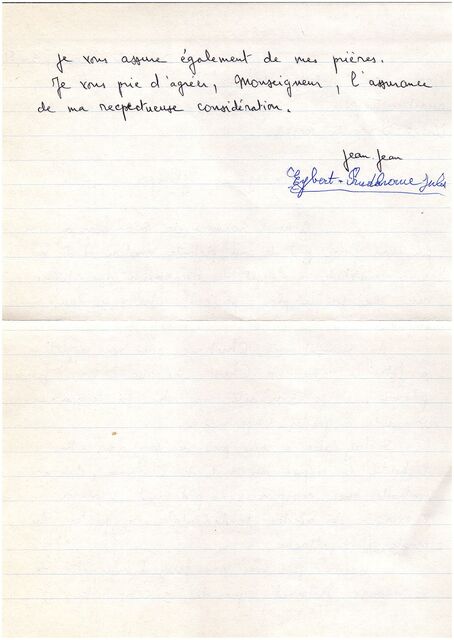 Je vous assure également de mes prières.
Je vous prie d'agréer, Monseigneur, l'assurance
de ma respectueuse considération.
Jean-Jean
Egbert - Prudhomme Jules